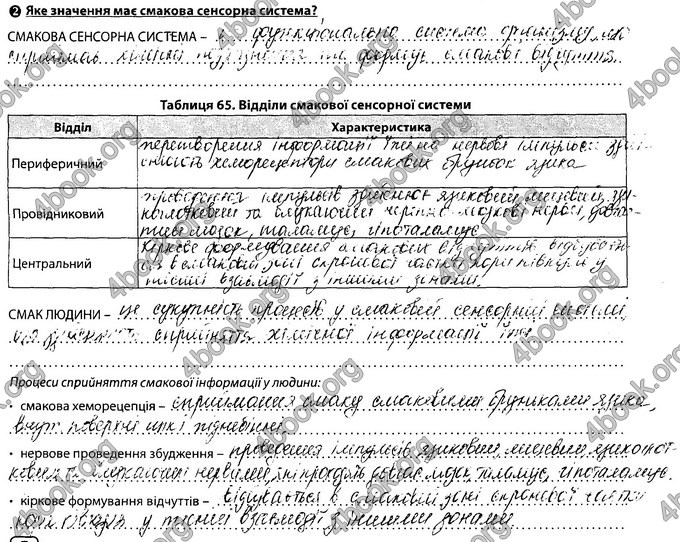 2 Яке значення має смакова сенсорна система?
СМАКОВА СЕНСОРНА СИСТЕМА – є функціональна система організму, що
сприймає хімічні подразнення та формує смакові відчуття.
Таблиця 65. Відділи смакової сенсорної системи
Відділ Характеристика
Периферичний перетворення інформації їжі на нервові імпульси
хеморецептори смакових бруньок язика
Провідниковий проведення імпульсів язиковий, лицевий,
та блукаючий черепно-мозкові нерви,
мозок, таламус, гіпоталамус
Центральний Кіркове формування смакових відчуттів
в смаковій зоні скроневої частки кори півкуль у
тісній взаємодії з іншими зонами.
СМАК ЛЮДИНИ – це сукупність процесів у смаковій сенсорній системі,
сприйняття хімічної інформації їжі
Процеси сприйняття смакової інформації у людини:
• смакова хеморецепція – сприймання смаку смаковими бруньками язика,
поверхні щік і піднебіння.
• нервове проведення збудження – проведення імпульсів язиковим, лицевим,
та блукаючим нервами, які проходять довгас. мозок, таламус, гіпоталамус.
• кіркове формування відчуттів – відбувається в смаковій зоні скроневої частки
кори у тісній взаємодії з іншими зонами
4book.org